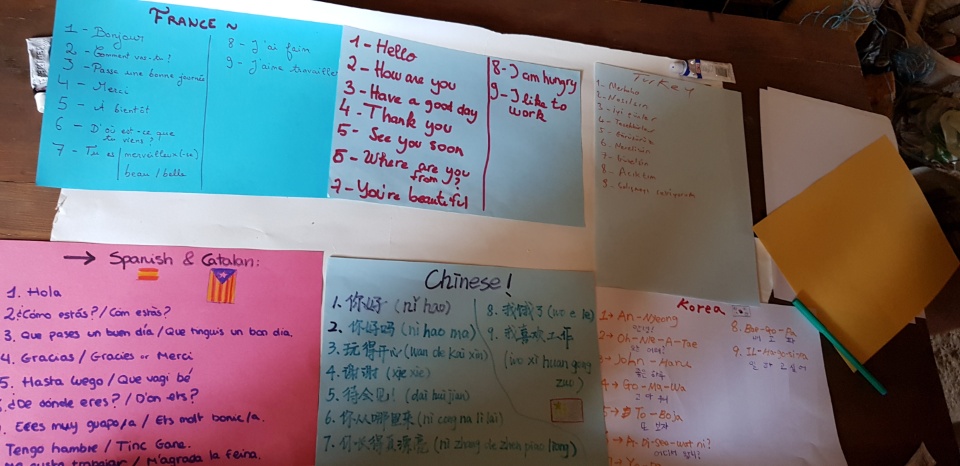 FRANCE ~
1 - Bonjour
2 - Comment vas-tu?
3 - Passe une bonne journée
4 - Merci
5 - A bientôt
6 - D'où est-ce que
tu viens?
7 - Tu es merveilleux(-se)
beau / belle
8 - J'ai faim
9 - J'aime travailler
1 - Hello
2 - How are you
3 - Have a good day
4 - Thank you
5 - See you soon
6 - Where are you
from?
7 - You're beautiful
8 - I am hungry
9 - I like to
work
Turkey
1 - Merhaba
2 - Nasılsın
3 - iyi günler
4 - Teşekkürler
5 - Görüşürüz
6 - Nerelisin
7 - Güzelsin
8 - Acıktım
9 - Çalışmayı seviyorum
→ Spanish & Catalan:
1. Hola
2. ¿Cómo estás? / Com estàs?
3. Que pases un buen día / Que tinguis un bon dia.
4. Gracias / Gràcies or Merci
5. Hasta luego / Que vagi bé
¿De dónde eres? / D'on ets?
Eres muy guapo/a / Ets molt bonic/a.
Tengo hambre / Tinc Gana.
Me gusta trabajar / M'agrada la feina.
Chinese!
1. 你好 (nǐ hao)
2. 你好吗 (ni hao ma)
3. 玩得开心 (wan de kai xin)
4. 谢谢 (xie xie)
5. 待会见! (dai hui jian)
6. 你从哪里来 (ni cong na li lai)
7. 你长得真漂亮 (ni zhang de zhen piao liang)
8. 我饿了 (wo e le)
9. 我喜欢工作
(wo xi huan gong
zuo)
Korea
1→ An-Nyeong
안녕!
2→ Oh-Nue-A-Tae
3→ John-Haru
좋은 하루
4→ Go-Ma-Wa
고마워
5→ To-Boja
또 보자
8. Bae-Go-Pa
배고파